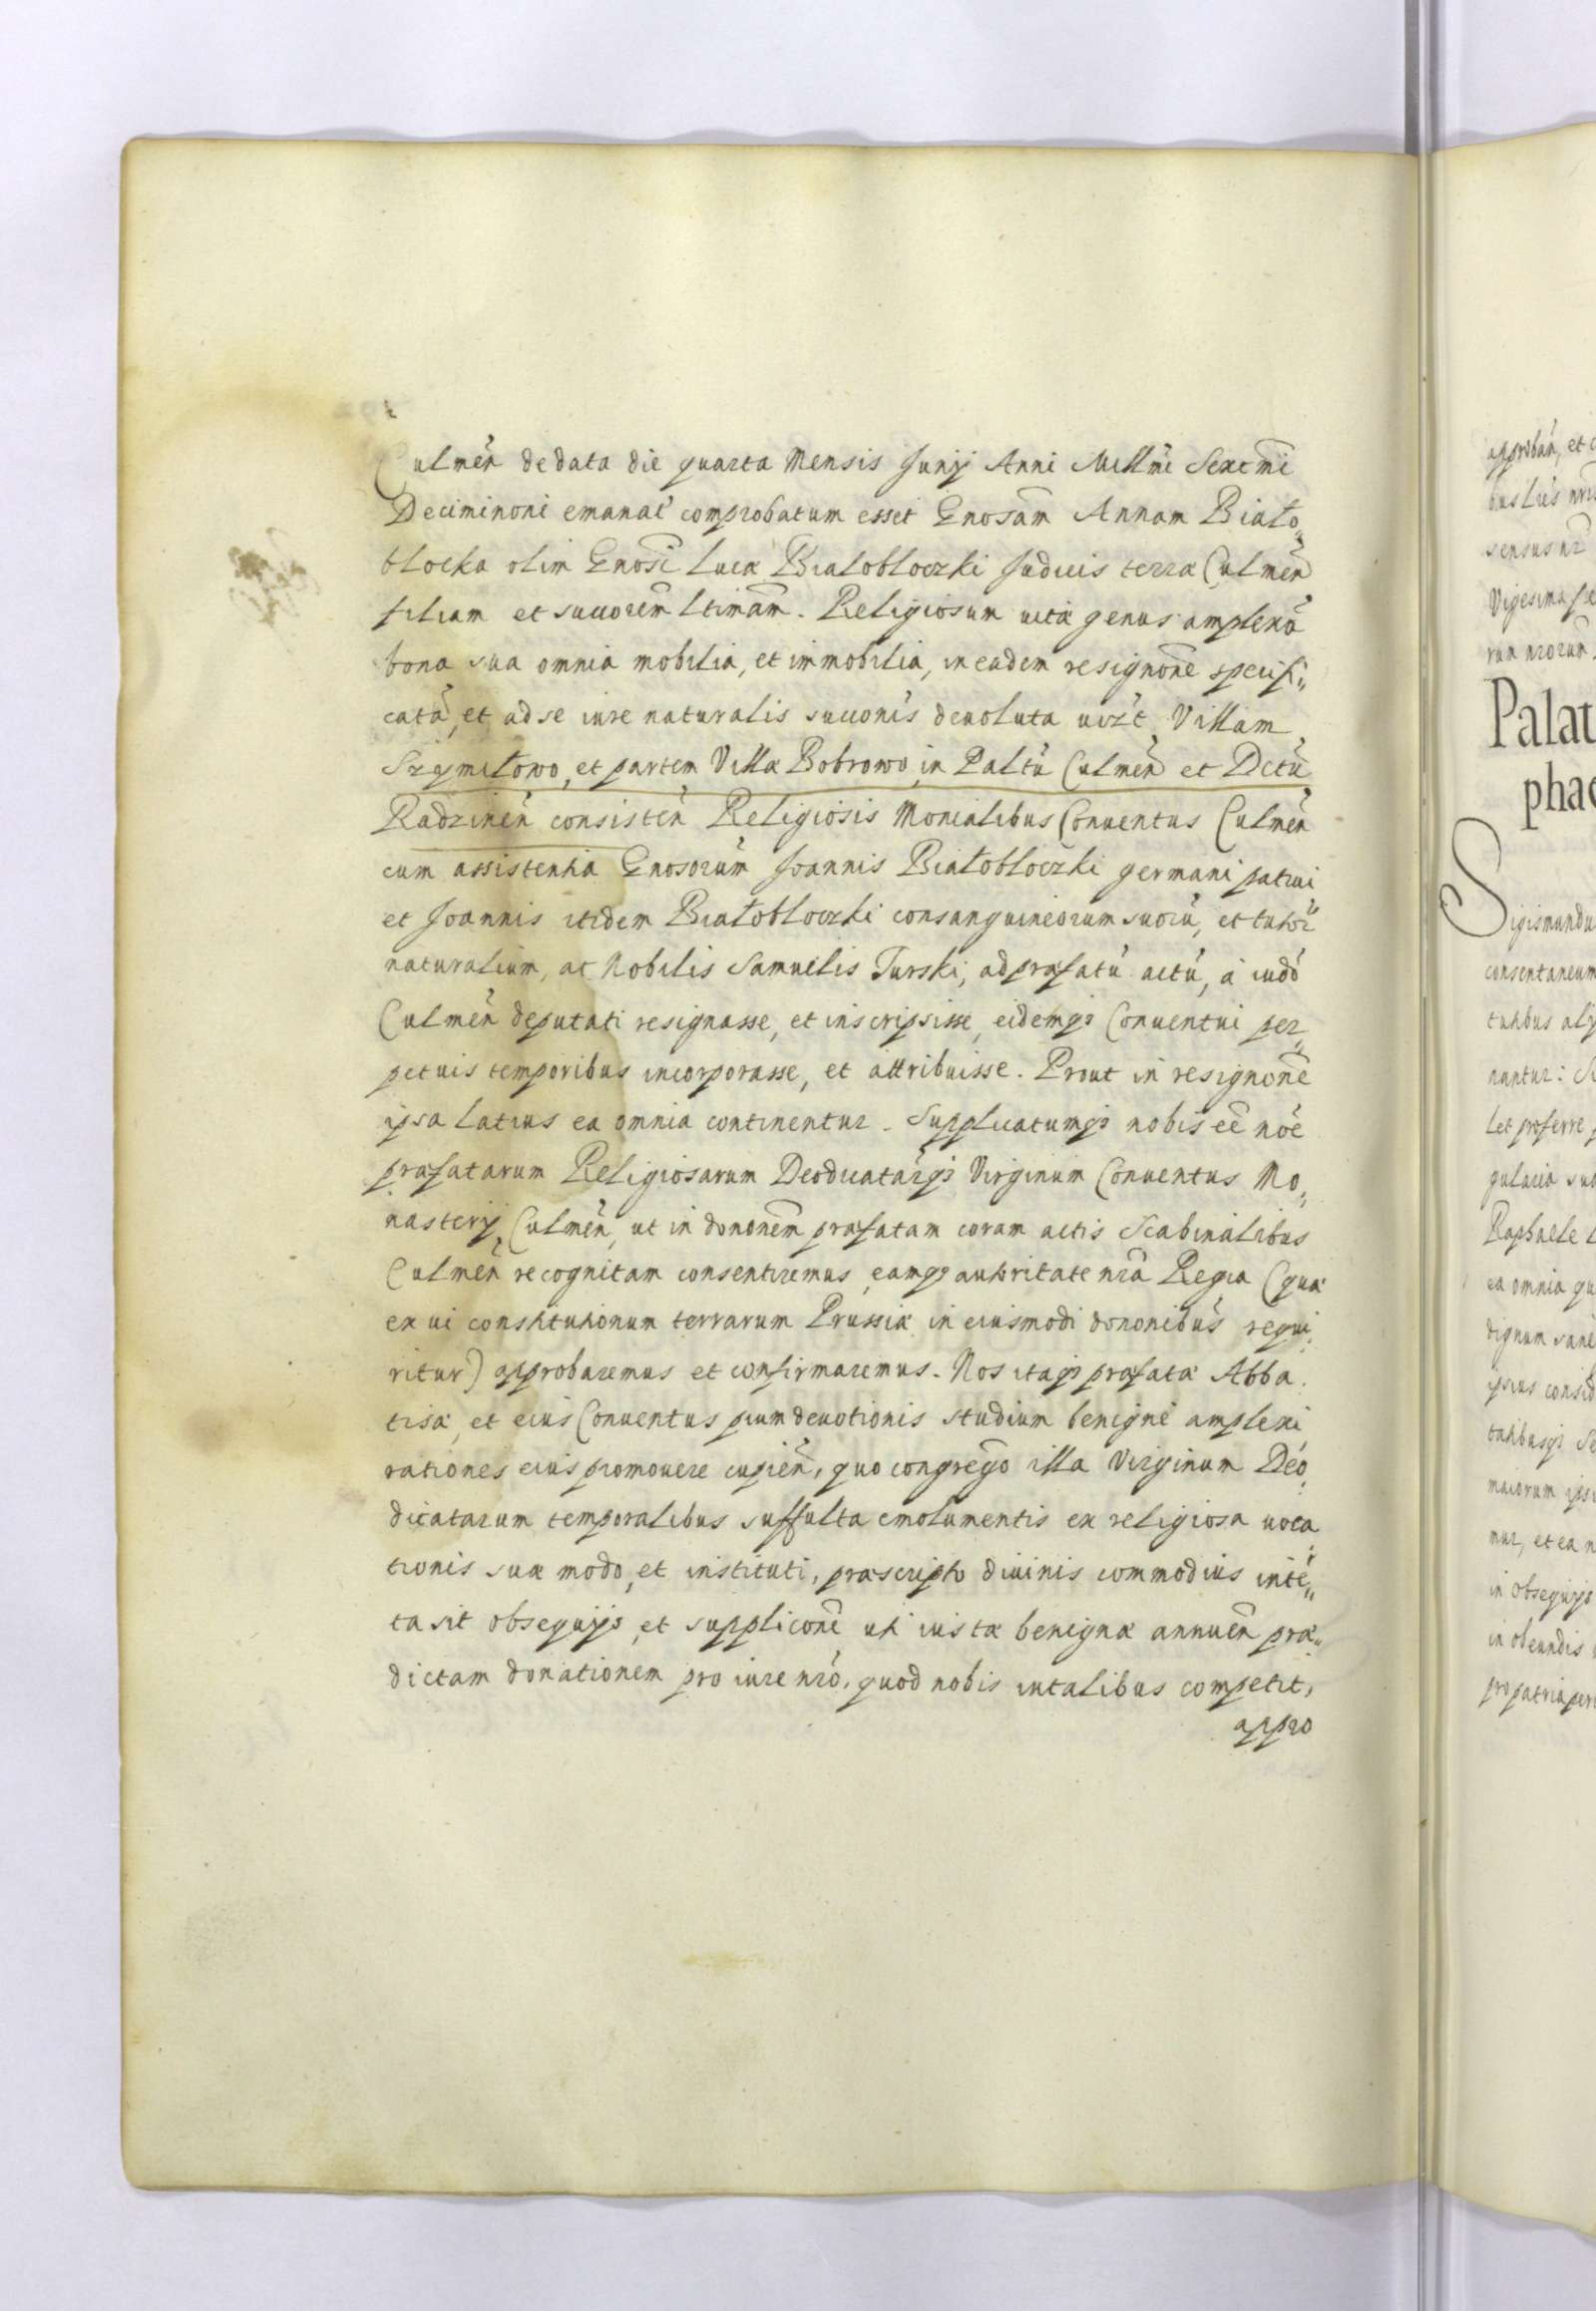 Culmeñ de data die quarta Mensis Junij Anni Millmi Sexcmi
Deciminoni emanaẽ comprobatum esset Gnosam Annam Biało„
błocka olim Gnosi Lucæ Białobłoczki Judicis terræ Culmeñ
filiam et succorem ltimam. Religiosum vitæ genus amplexã
bona sua omnia mobilia, et immobilia, in eadem resignone specifi„
catã, et ad se iure naturalis succonis devoluta vizt, Villam
Szymiłowo, et partem Villæ Bobrowo in Paltu Culmeñ et Dctu
Radzineñ consisteñ Religiosis Monialibus Conuentus Culmeñ
cum assistentia Gnosorum Joannis Białobłoczki germani patrui
et Joannis itidem Białobłoczki consanguineorum suorũ, et tutor̃
naturalium, ac Nobilis Samuelis Turski, ad præfatũ actũ, à iudõ
Culmeñ deputati resignasse, et inscripsisse, eidemqз Conuentui per„
petuis temporibus incorporasse, et attribuisse. Prout in resignone
ipsa latius ea omnia continentur. Supplicatumqз nobis eẽ noẽ
præfatarum Religiosarum Deodicatarqз Virginum Conuentus Mo„
nasterij Culmeñ, ut in dononem præfatam coram actis Scabinalibus
Culmeñ recognitam consentiremus, eamqз autoritate nrã Regia (quæ
ex vi constitutionum terrarum Prussiæ in eiusmodi dononibus requi„
ritur) approbaremus et confirmaremus. Nos itaqз præfatæ Abba„
tisæ, et eius Conuentus pium deuotionis studium benigne amplexi
rationes eius promouere cupieñ, quo congrego illa Virginum Deo„
dicatarum temporalibus suffulta emolumentis ex religiosa uoca„
tionis suæ modo, et instituti, præscripto diuinis commodius intẽ„
ta sit obsequijs, et supplicone uti iustæ benignæ annueñ præ„
dictam donationem pro iure nro, quod nobis in talibus competit,
appro
approbañ, et c
bus Lr̃is nris
sensus nr̃
Vigesima se
rum nrorum.
Palat
phae
Sigismundu
consentaneum
tutibus aliz
nantur: S
Let proferre p
gularia suo
Raphaele L
ea omnia qu
dignum sane
ipsius consid
tatibusqз Se
maiorum ipsi
mur, et ea n
in obsequijs
in obeundis
pro patria peri